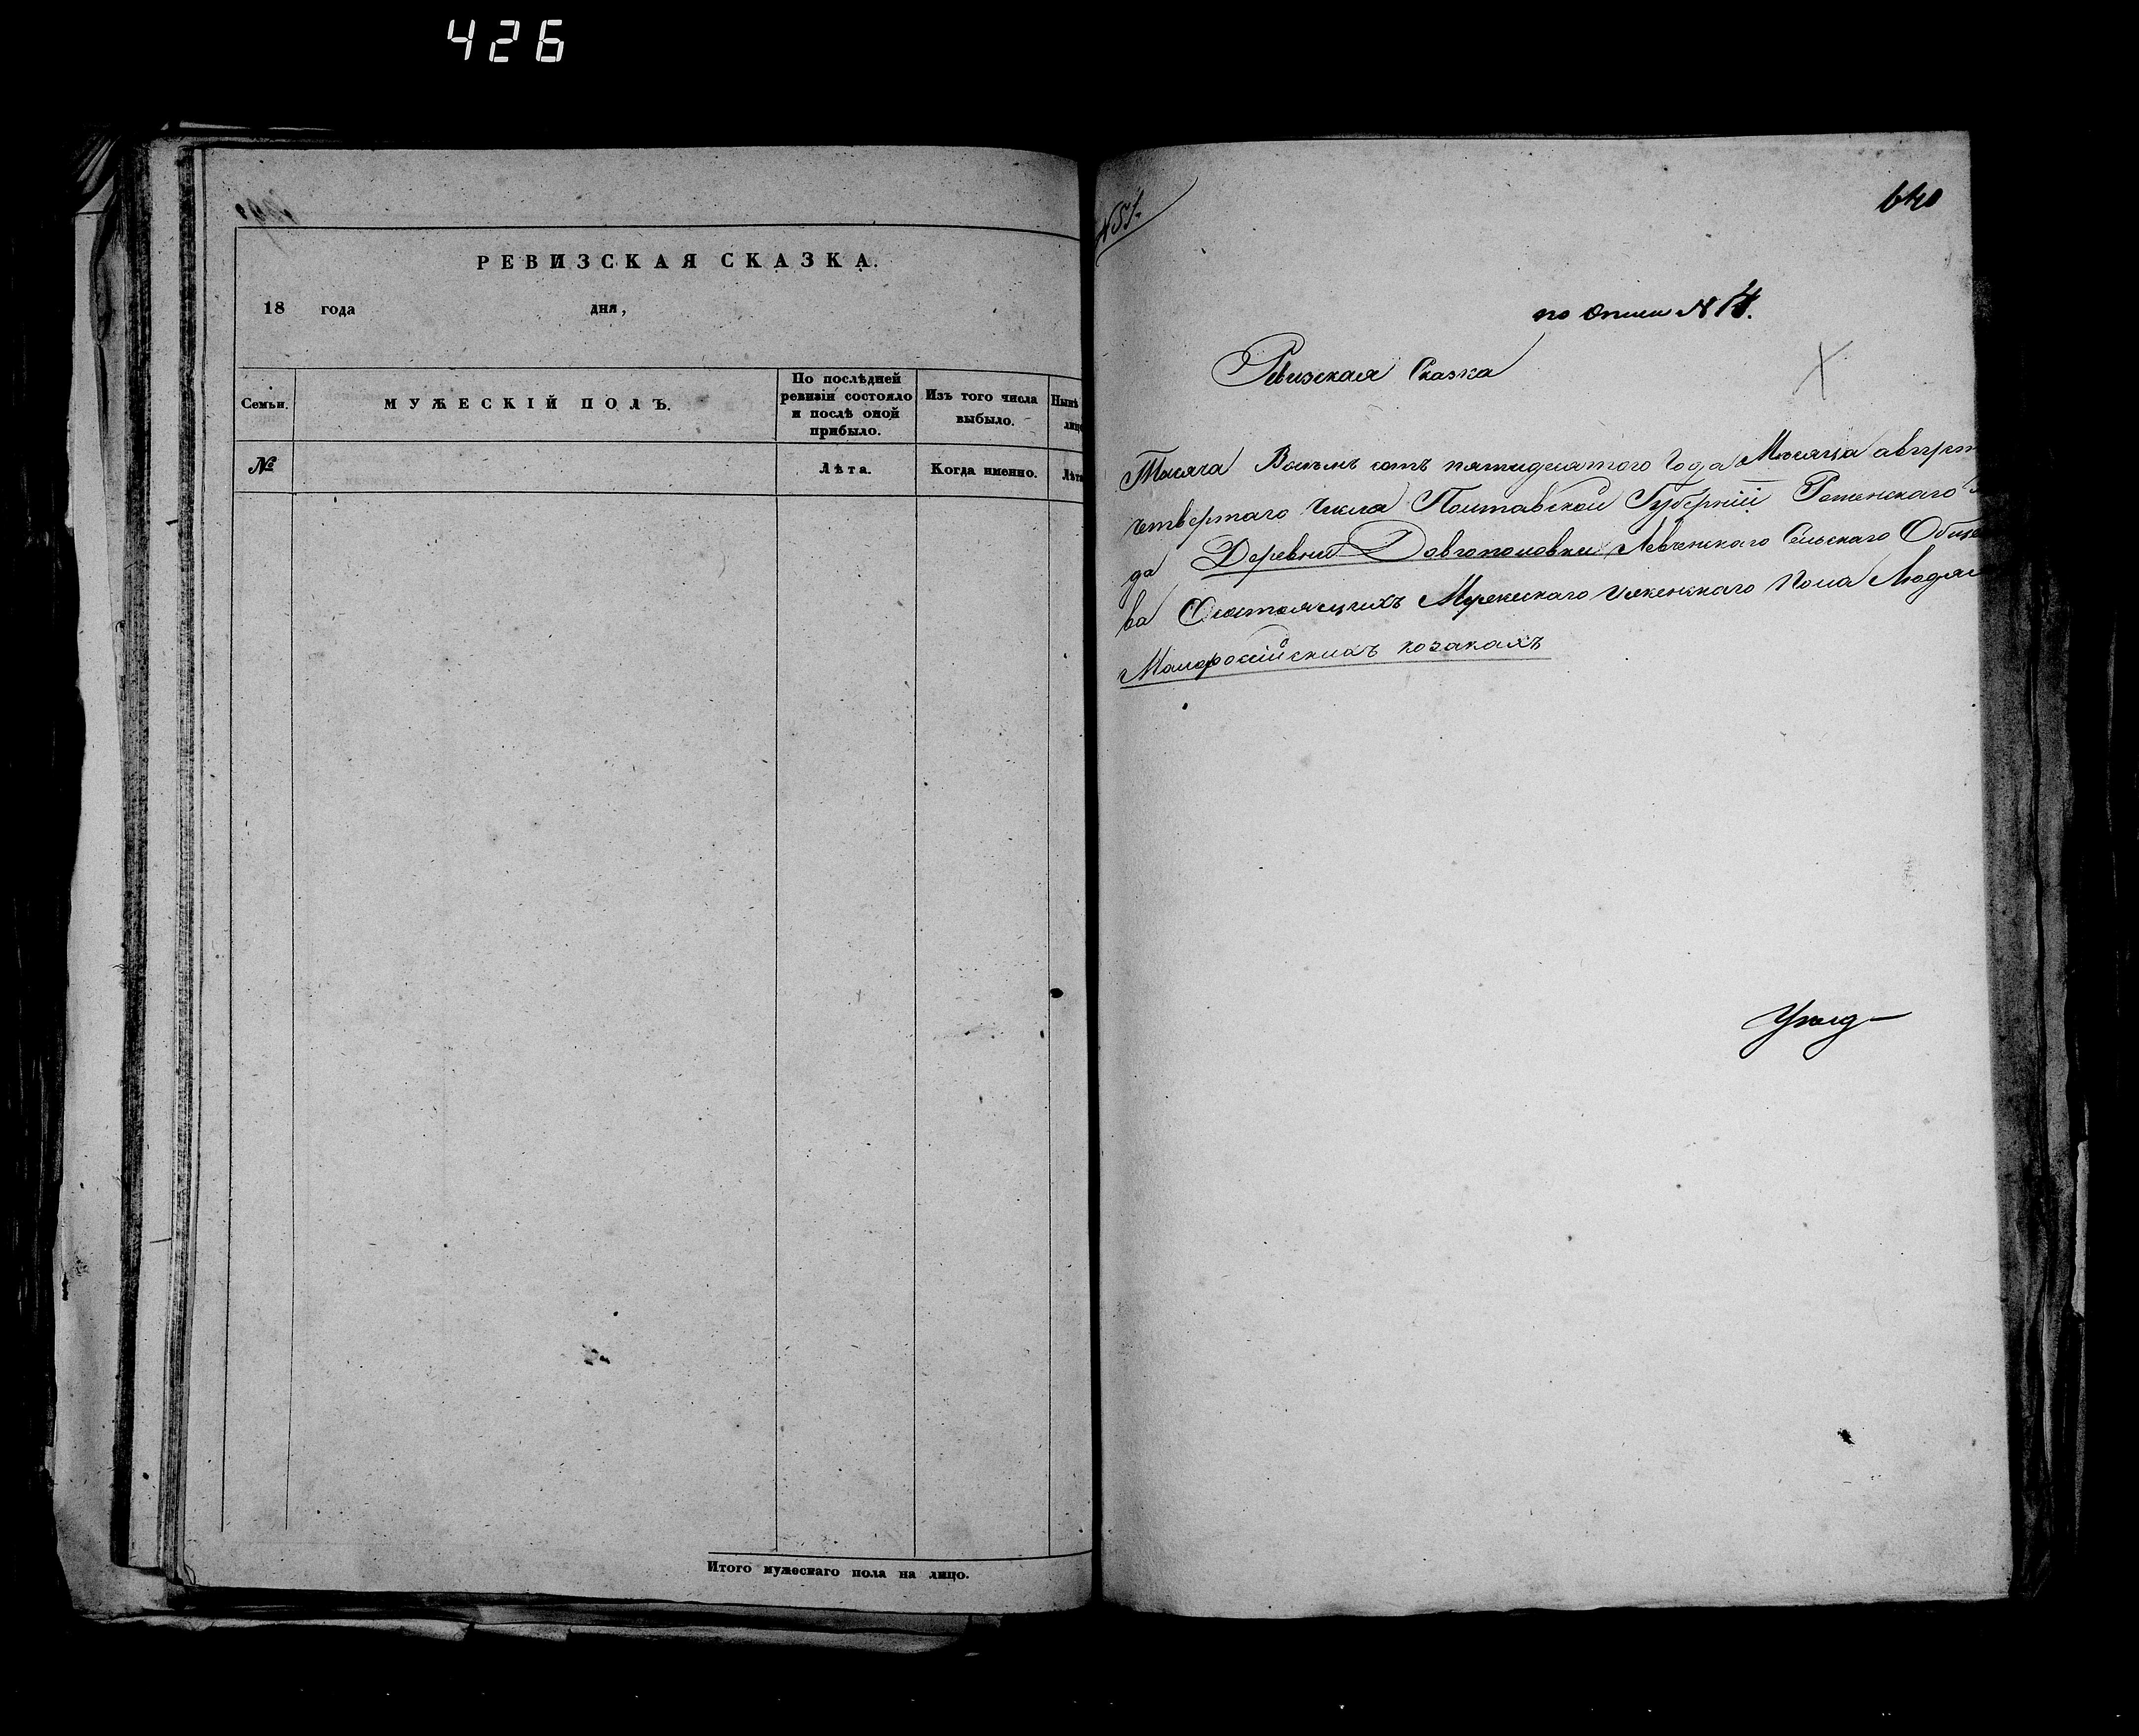 426
РЕВИЗСКАЯ СКАЗКА.
18 года дня,
Семьи.
МУЖЕСКІЙ ПОЛЪ.
По послѣдней ревизіи состояло и послѣ оной прибыло.
Изъ того числа выбыло.
Нынѣ
лицо
№
Лѣта.
Когда именно.
Лѣта
Итого мужескаго пола на лицо.
N 51.
640
по описи N
Ревизская Сказка
Тысяча Восемь сотъ пятидесятого Года Мѣсяца август
четвертаго Числа Полтавской Губерніи Роменскаго
да Деревни Довгополовки Левченскаго Сельскаго Общес
ва Состоящихъ Мужескаго и женскаго Пола Людях
Малороссійскихъ козакахъ